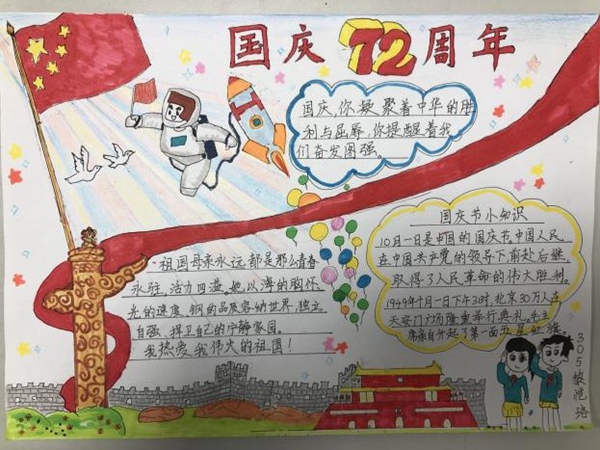 国庆72周年
国庆,你凝聚着中华的胜
利与屈辱,你提醒着我
们奋发图强
国庆节小知识
10月一日是中国的国庆节,中国人民
在中国共产党的领导下前赴后继,
取得了人民革命的伟大胜利。
1949年10月一日下午3时,北京30万人在
天安门广场隆重举行典礼。毛主
席亲自升起了第一面五星红旗。
祖国母亲永远都是那么青春
永驻,活力四溢。她以海的胸怀,
光的速度,钢的品质容纳世界,独立
自强,捍卫自己的宁静家园。
我热爱我伟大的祖国!
305